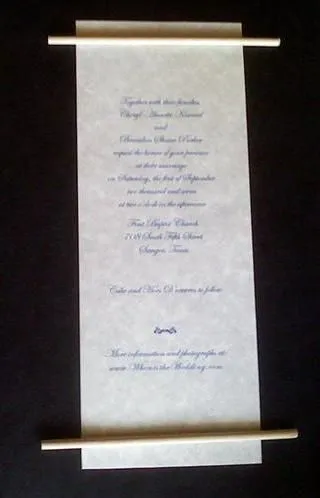 Together with their families
Cheryl Annette
and
Brandon Shane Parker
request the honor of your presence
at their marriage
on Saturday, the first of September
two thousand and seven
at two o'clock in the afternoon
First Baptist Church
708 South Fifth Street
Texas
Cake and Hors D'oeuvres to follow
More information and photographs at:
www.WhensTheWedding.com